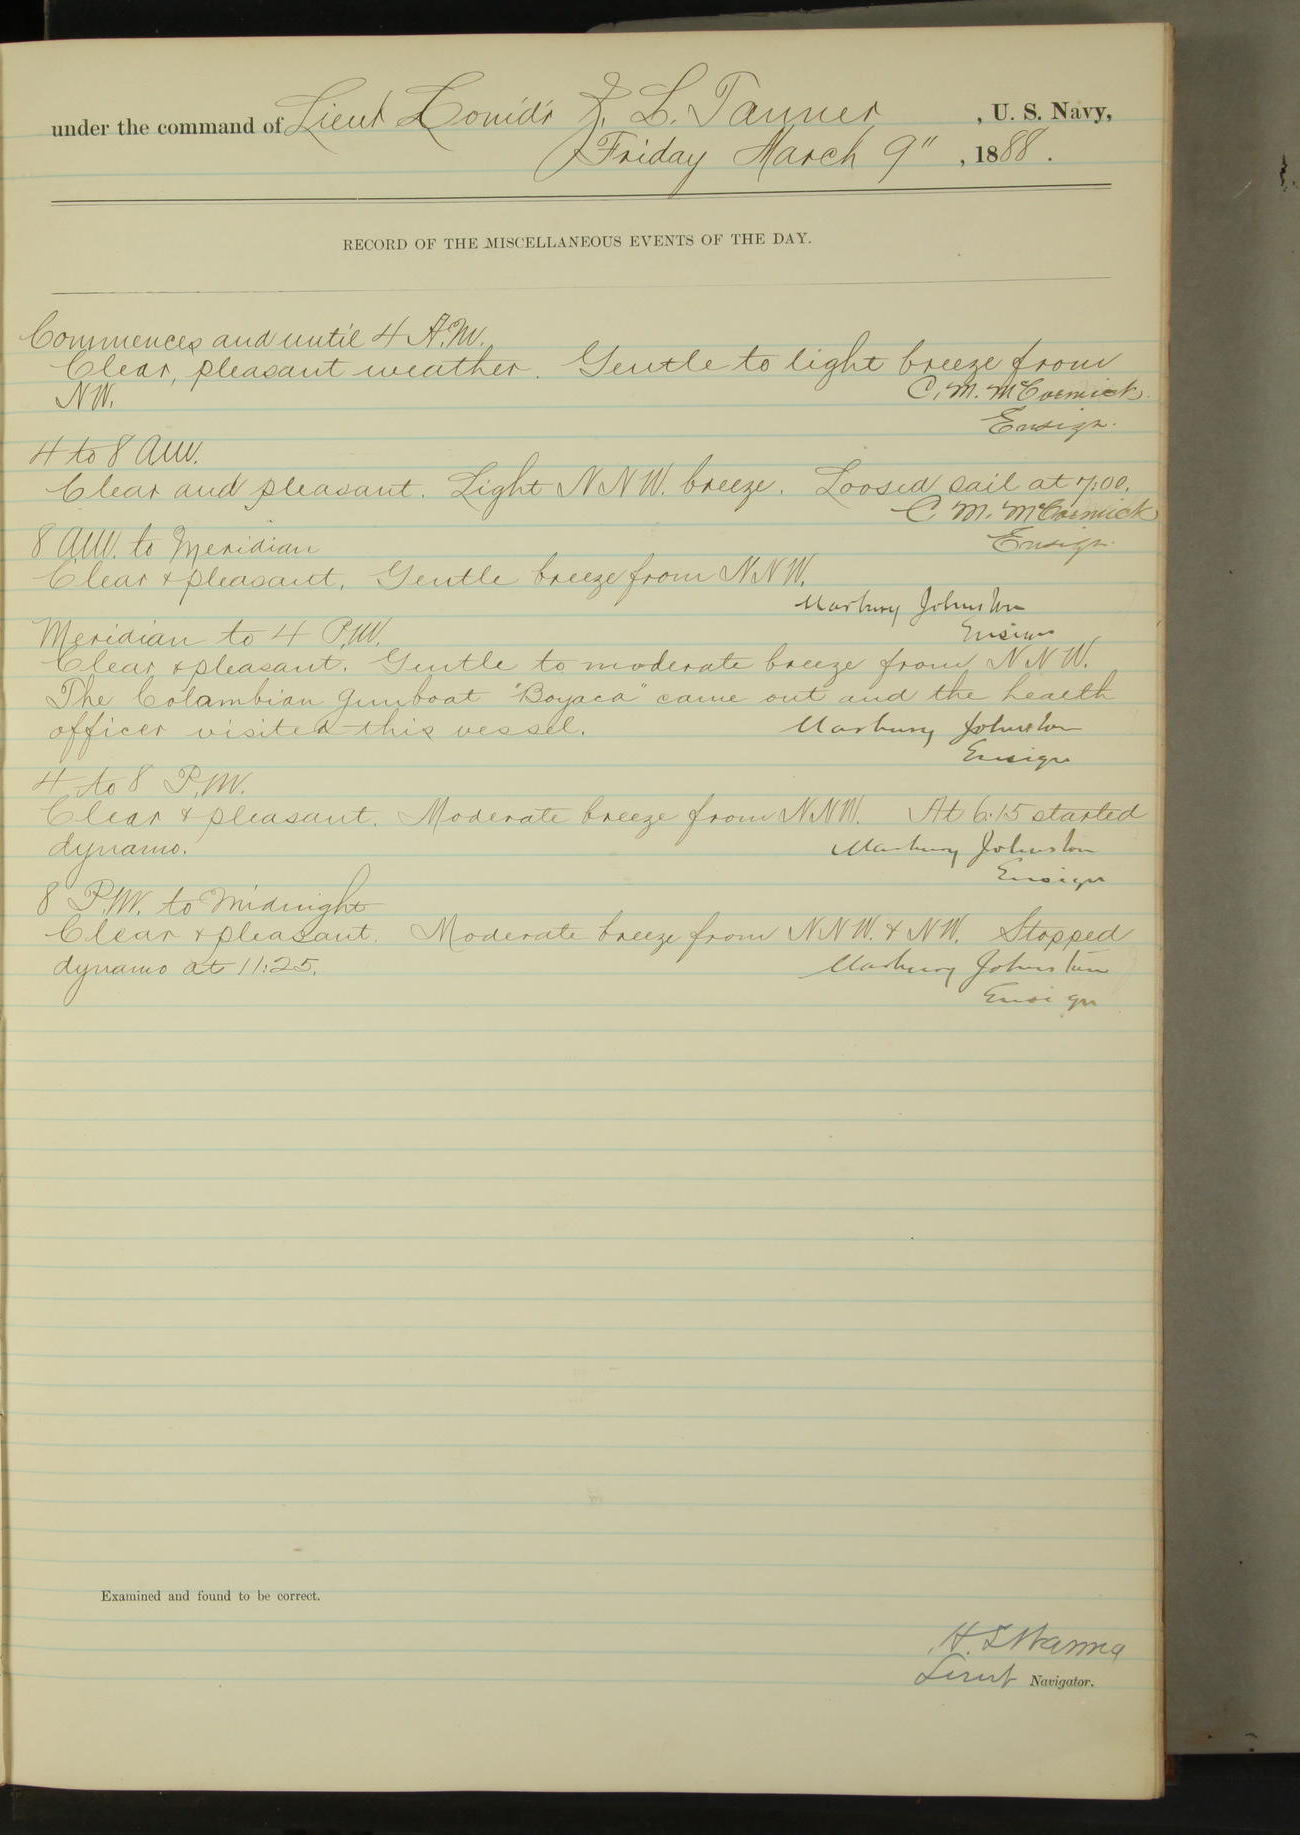 under the command of Lieut Comd'r Z. L. Tanner, U. S. Navy,
Friday March 9", 1888.
RECORD OF THE MISCELLANEOUS EVENTS OF THE DAY.
Commences and until 4 A.M.
Clear, pleasant weather. Gentle to light breeze from
NW. C. M. McCormick.
Ensign.
4 to 8 A.M.
Clear and pleasant. Light NNW. breeze. Loosed sail at 7:00.
C. M. McCormick
Ensign.
8 A.M. to Meridian
Clear & pleasant. Gentle breeze from NNW.
Marbury Johnston
Ensign
Meridian to 4 P.M.
Clear & pleasant. Gentle to moderate breeze from NNW.
The Colambian gunboat "Boyaca" came out and the health
officer visited this vessel. Marbury Johnston
Ensign
4 to 8 P.M.
Clear & pleasant. Moderate breeze from NNW. At 6:15 started
dynamo. Marbury Johnston
Ensign
8 P.M. to Midnight
Clear & pleasant. Moderate breeze from NNW. & NW. Stopped
dynamo at 11:25. Marbury Johnston
Ensign
Examined and found to be correct.
H. E.
Lieut Navigator.